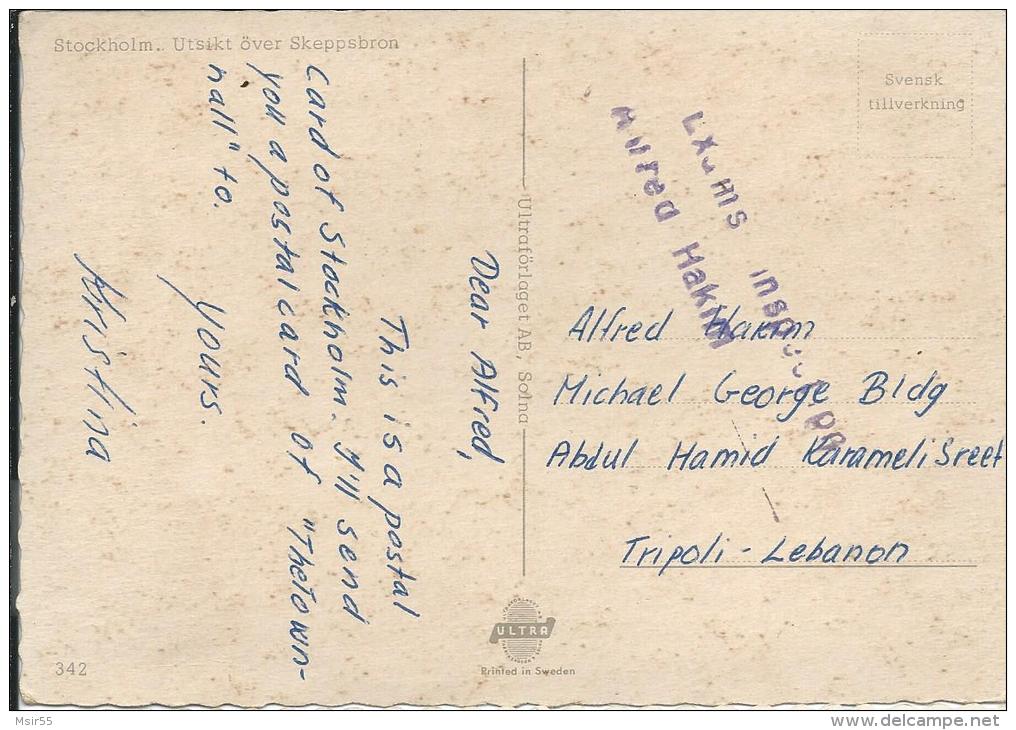 Stockholm. Utsikt över Skeppsbron
Dear Alfred,
This is a postal
card of Stockholm. I'll send
you a postal card of "Thetown-
hall" to.
Yours.
Kristina
342
Ultraförlaget AB, Solna
ULTRA
Printed in Sweden
Svensk
tillverkning
Alfred Hakim
Alfred Hakim
Michael George Bldg
Abdul Hamid Karameli Sreet
Tripoli - Lebanon
Msir55
delcampe.net